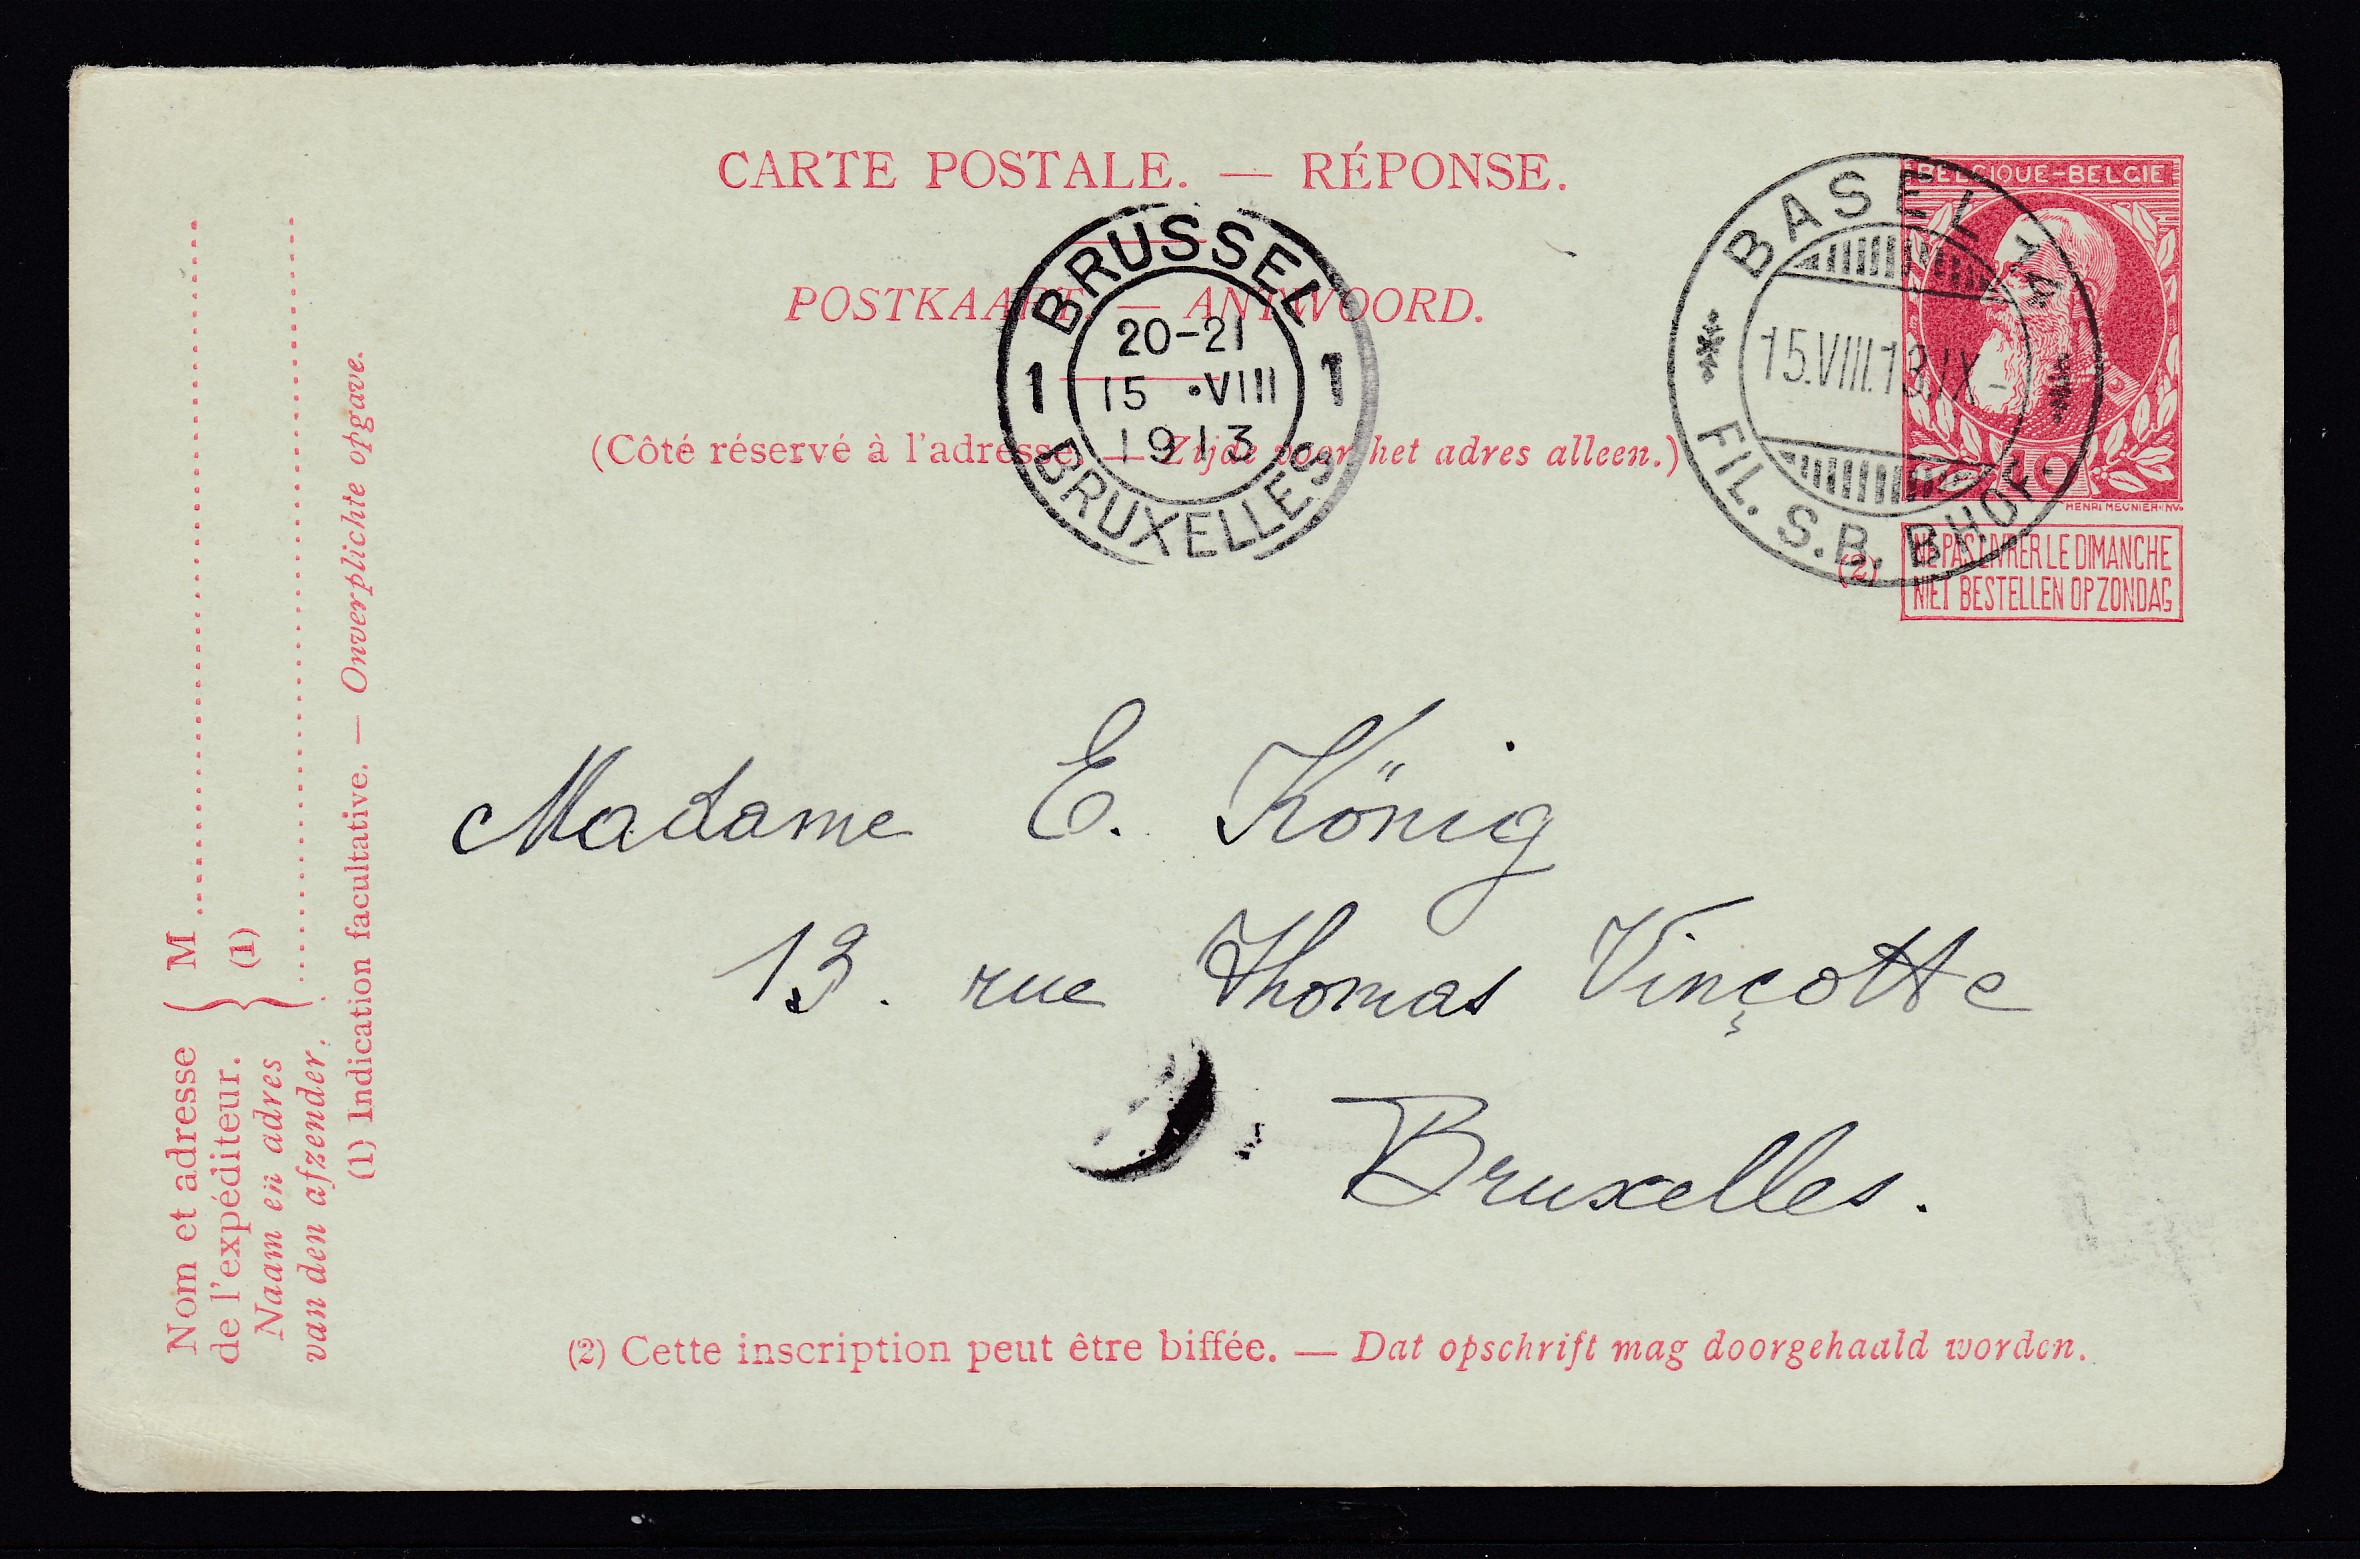 CARTE POSTALE. — RÉPONSE.
POSTKAART. — ANTWOORD.
(Côté réservé à l'adresse. — Zijde voor het adres alleen.)
BRUSSEL
1 1
20-21
15 •VIII
1913
BRUXELLES
BASEL 14
15.VIII.13.IX-
FIL. S.B. BHOF.
BELGIQUE-BELGIE
10
HENRI MEUNIER INV.
(2) NE PAS LIVRER LE DIMANCHE
NIET BESTELLEN OP ZONDAG
Madame E. König
13. rue Thomas Vinçotte
Bruxelles.
Nom et adresse
de l'expéditeur.
Naam en adres
van den afzender.
M
(1)
(1) Indication facultative. — Onverplichte opgave.
(2) Cette inscription peut être biffée. — Dat opschrift mag doorgehaald worden.